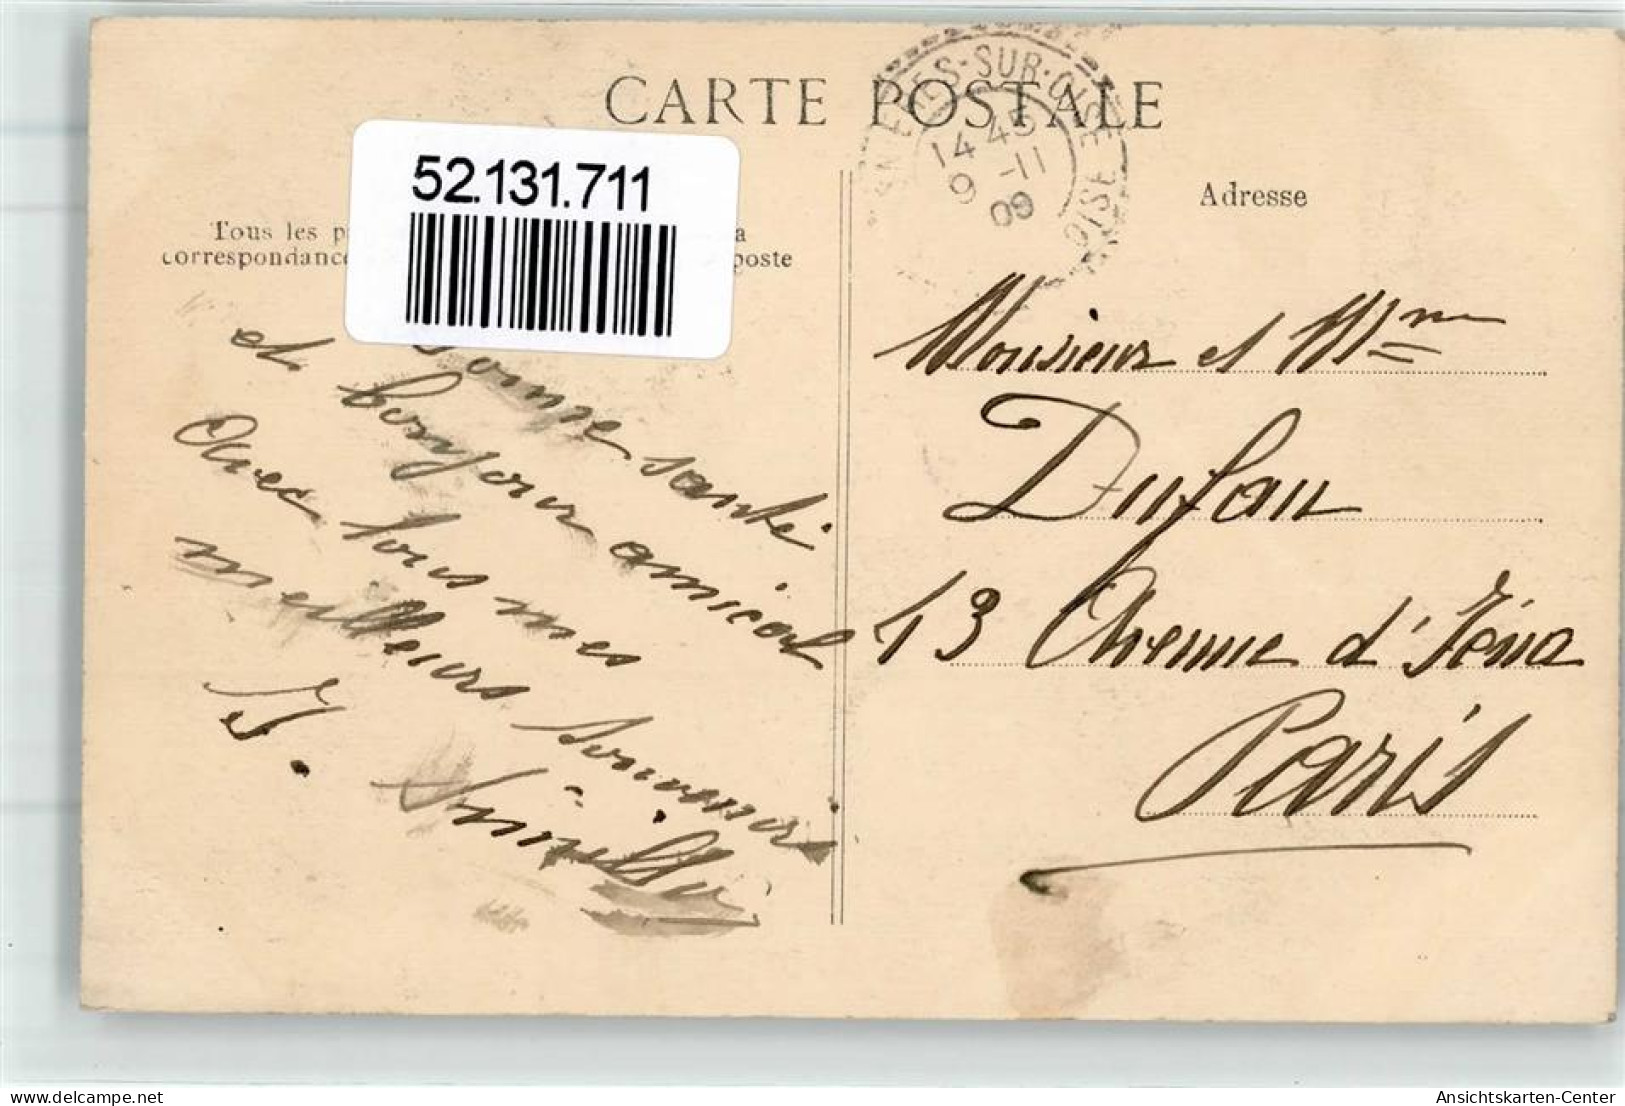 CARTE POSTALE
ES-SUR-OISE
OISE
14 45
9 -11
09
52.131.711
Adresse
Tous les p a
correspondance poste
Monsieur et Mme
Dufau
13 Avenue d'Iéna
Paris
bonne santé
et bonjour amical
Avec tous mes
meilleurs souvenirs
delcampe.net
Ansichtskarten-Center